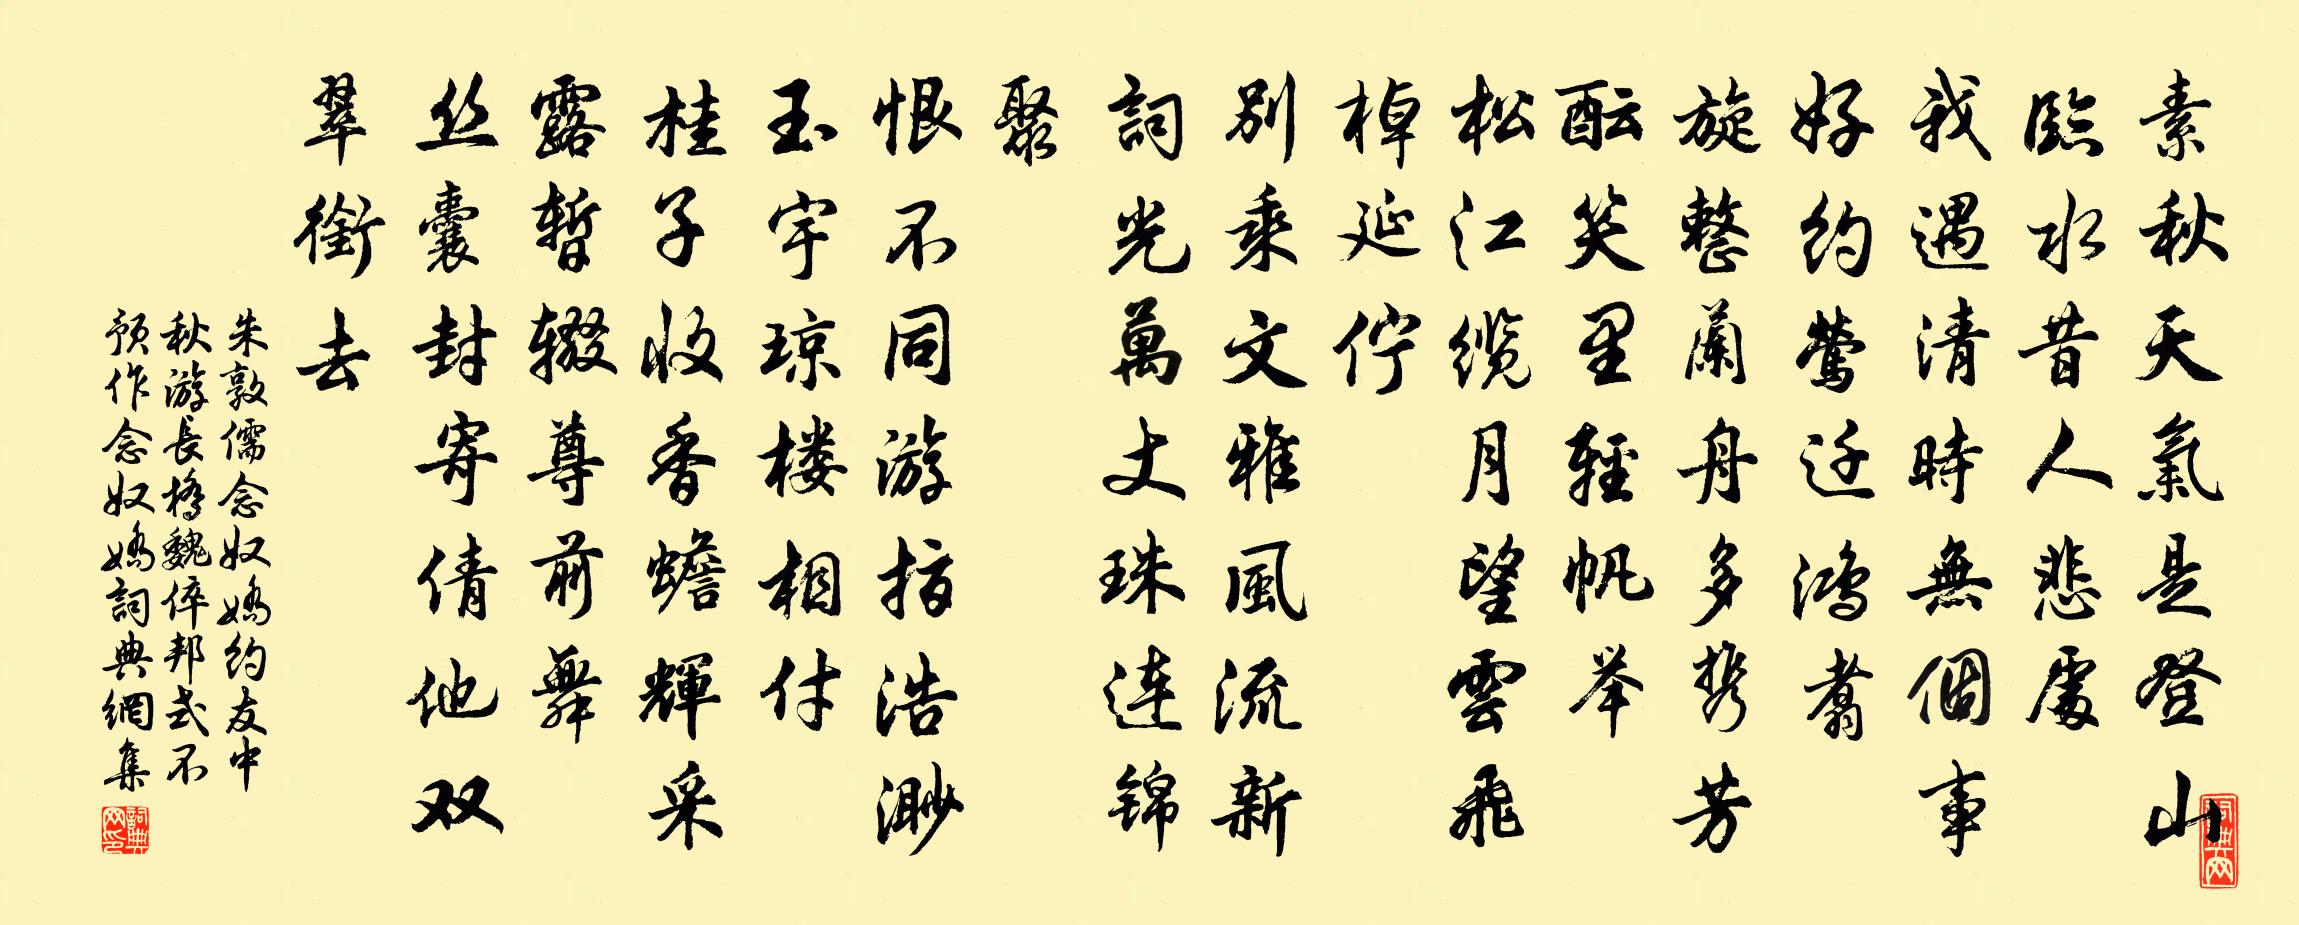 素秋天氣是登山
臨水昔人悲處
我遇清時無個事
好約鶯迁鴻翥
旋整蘭舟多携芳
酝笑里輕帆举
松江缆月望雲飛
棹延佇
别乘文雅風流新
詞光萬丈珠连锦
聚
恨不同游指浩渺
玉宇琼楼相付
桂子收香蟾輝采
露暫辍尊前舞
丝囊封寄倩他双
翠銜去
朱敦儒念奴嬌約友中
秋游長橋魏倅邦式不
預作念奴嬌詞典網集
詞典网印
詞典网